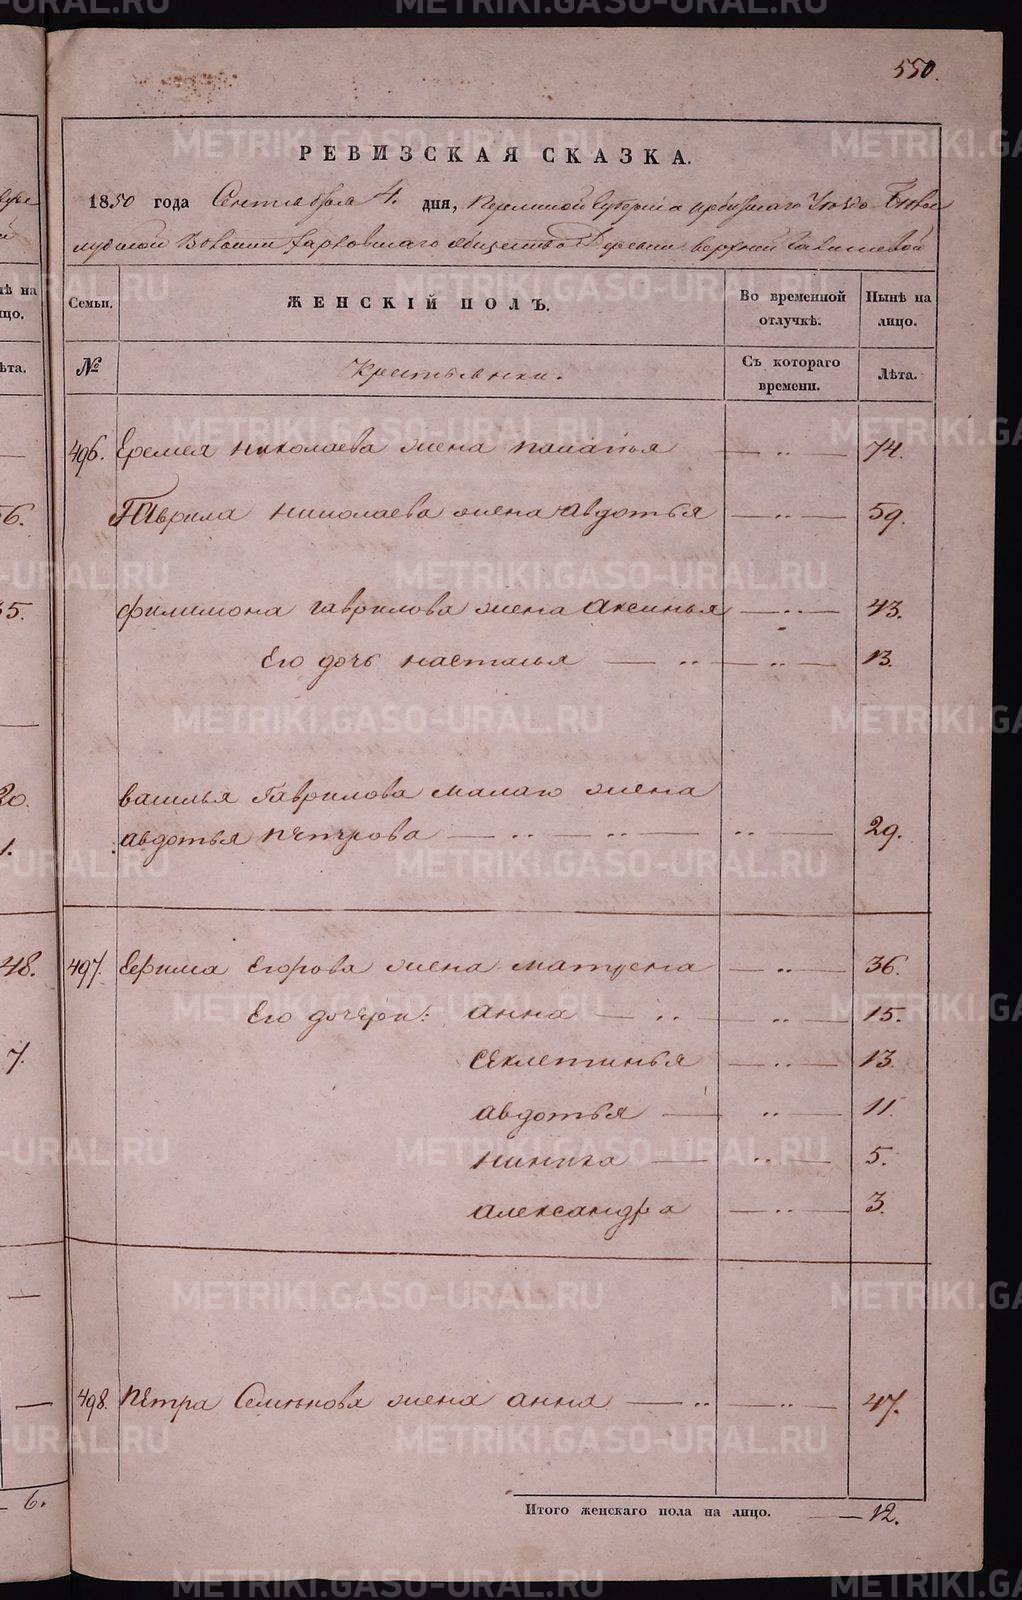 550.
РЕВИЗСКАЯ СКАЗКА.
1850 года Сентября 4. дня, Пермской Губернии Ирбитскаго Уезда Белослудской Волости Харловскаго общества Деревни Верхней
Семьи.
ЖЕНСКІЙ ПОЛЪ.
Во временной отлучкѣ.
Нынѣ на лицо.
№
Крестьянки.
Съ котораго времени.
Лѣта.
496. Еремея Николаева жена палагья — .. — 74.
Гаврила николаева жена авдотья — .. — 59.
филимона гаврилова жена аксинья — .. — 43.
Его дочь настасья — .. — .. — 13.
василья Гаврилова малаго жена
авдотья пЕтрова — .. — .. — .. — 29.
497. Ефима Егорова жена матрена — .. — 36.
Его дочери: анна — .. — .. — 15.
сЕклетинья — .. — 13.
авдотья — .. — 11.
александра — .. — 3.
498. пЕтра Семенова жена анна — .. — .. — 47.
Итого женскаго пола на лицо. — 12.
6.
METRIKI.GASO-URAL.RU